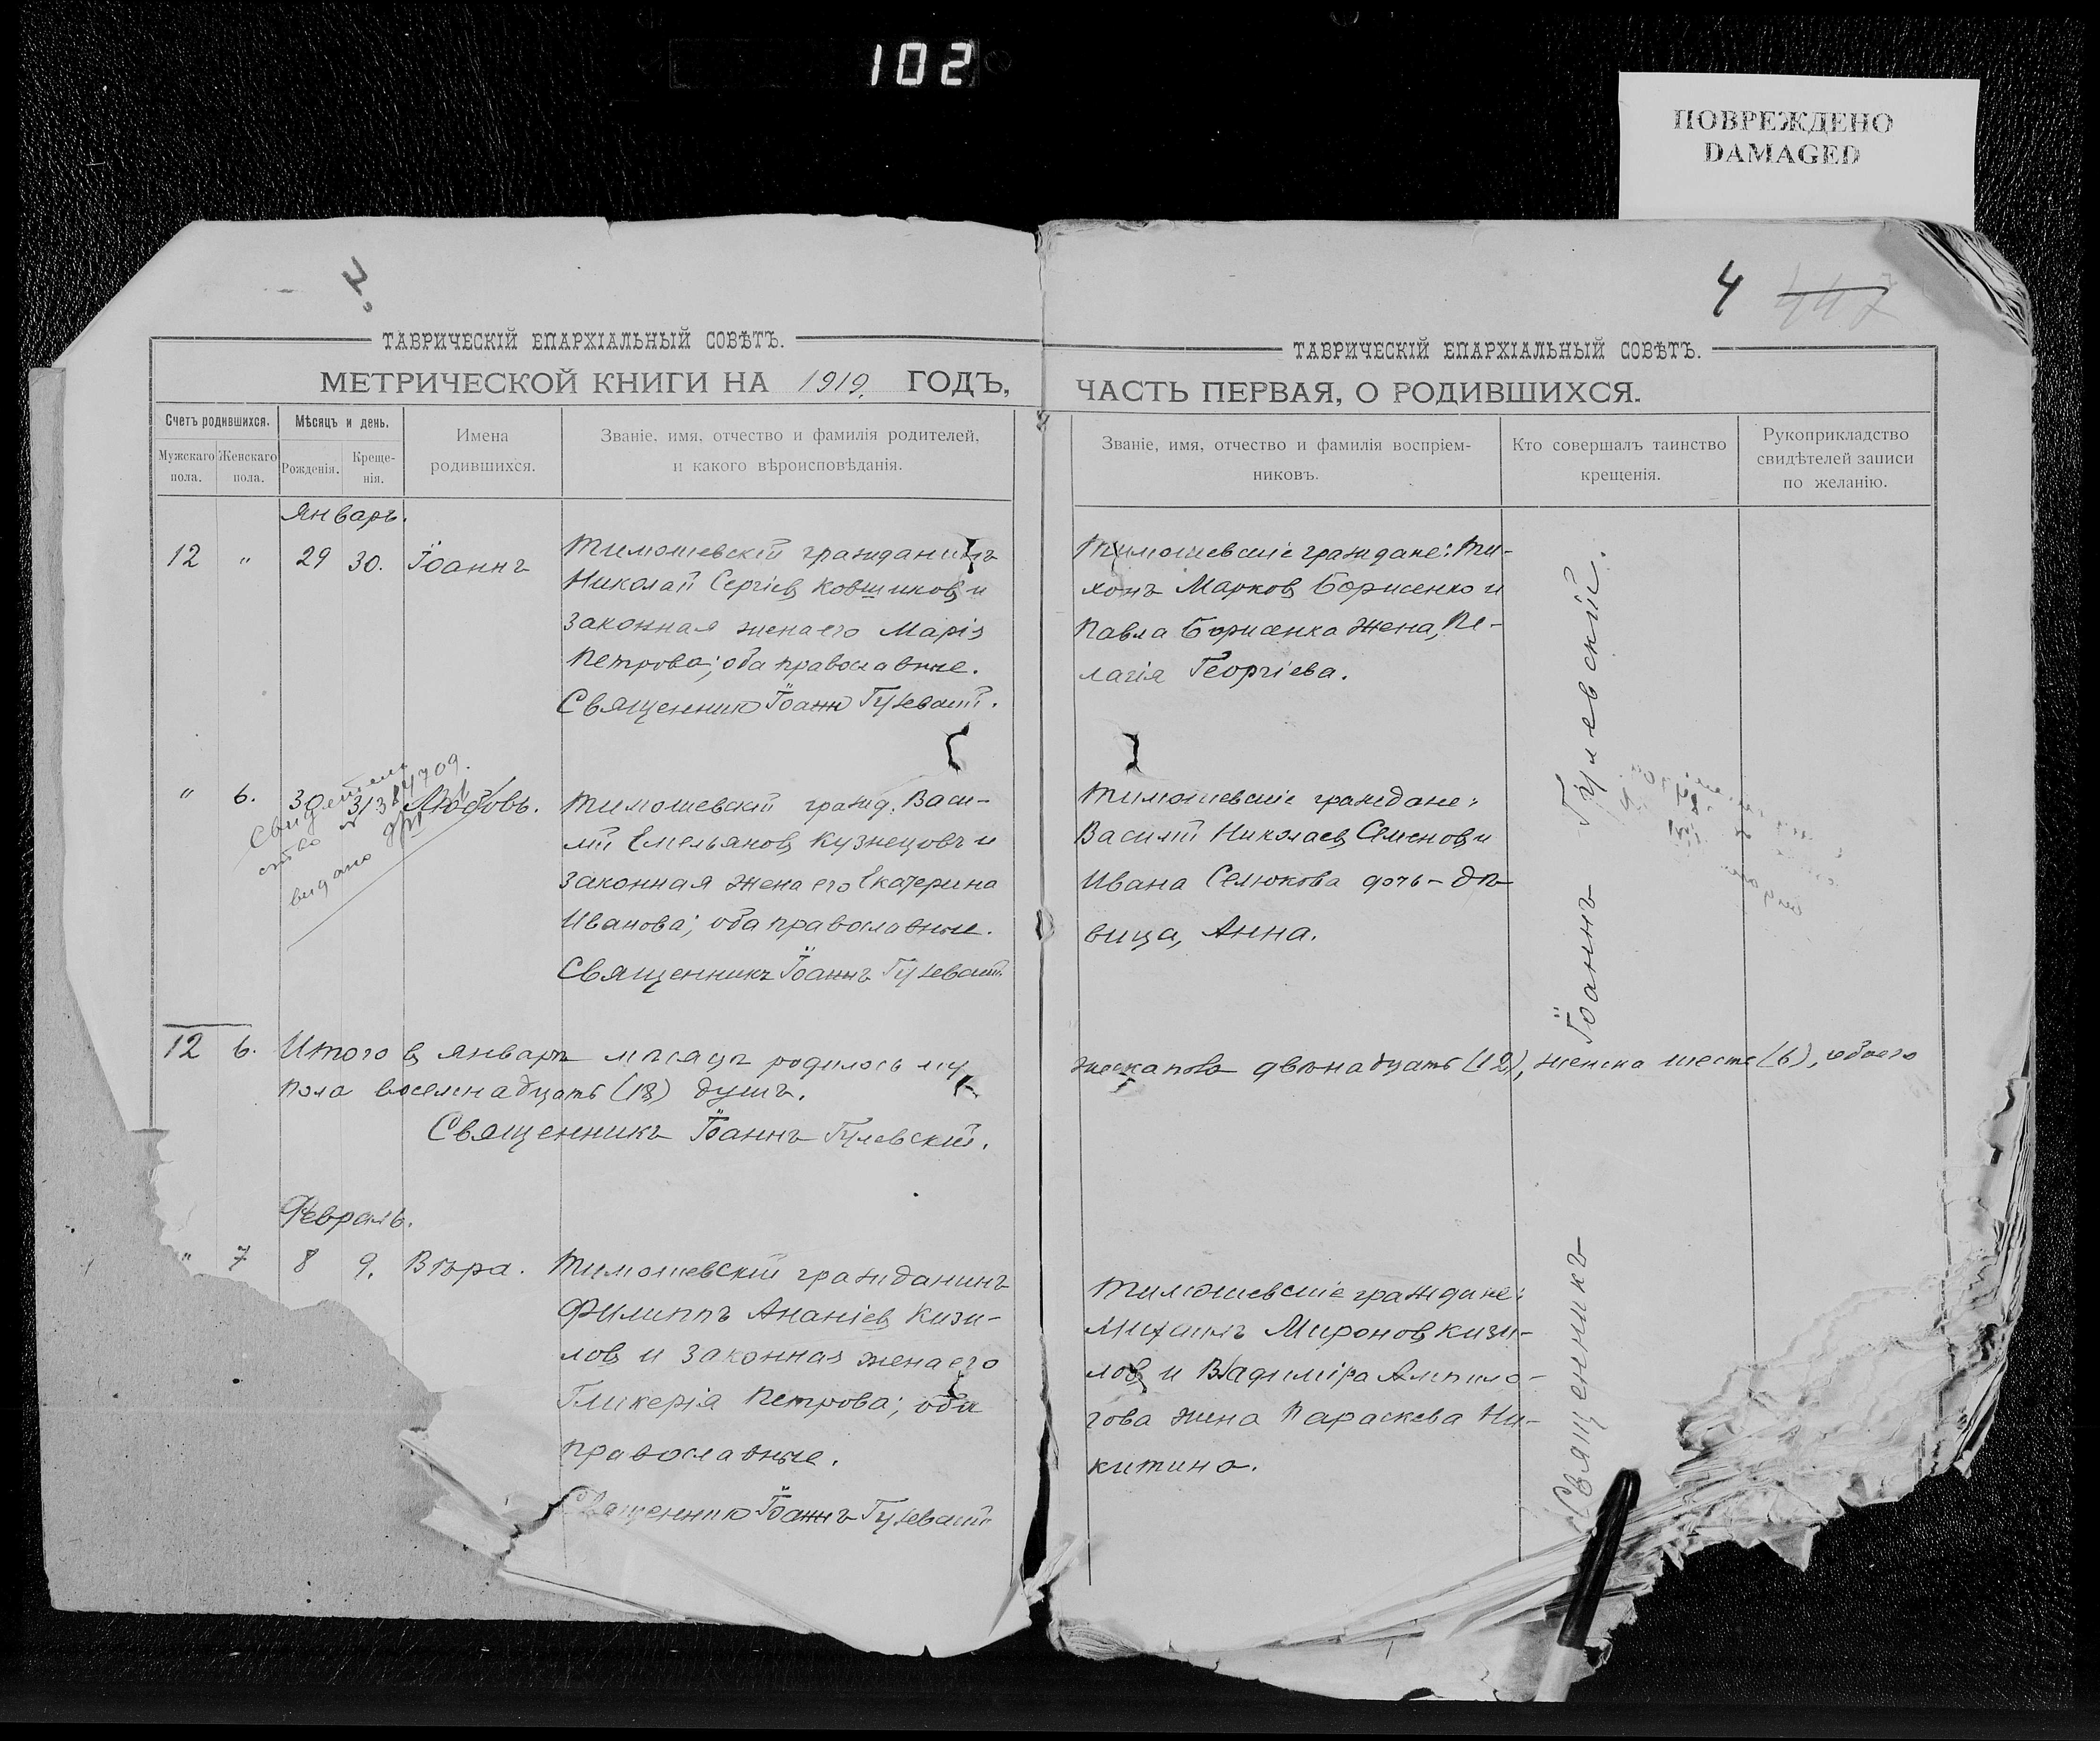 102
ПОВРЕЖДЕНО
DAMAGED
4 447
ТАВРИЧЕСКІЙ ЕПАРХІАЛЬНЫЙ СОВѢТЪ.
МЕТРИЧЕСКОЙ КНИГИ НА 1919. ГОДЪ,
Счетъ родившихся.
Мужскаго пола.
Женскаго пола.
Мѣсяцъ и день.
Рожденія.
Крещенія.
Имена
родившихся.
Званіе, имя, отчество и фамилія родителей,
и какого вѣроисповѣданія.
Январь.
12 " 29 30. Іоаннъ
Тимошевскій гражданинъ
Николай Сергіевъ Ковшиковъ и
законная жена его Марія
Петрова; оба православные.
Священникъ Іоаннъ Гулевскій.
" 6. 30 31 Любовь.
Свидетель
ство №
видано
Тимошевскій гражд. Васи-
лій Емельяновъ Кузнецовъ и
законная жена его Екатерина
Иванова; оба православные.
Священникъ Іоаннъ Гулевскій.
12 6. Итого въ январѣ мѣсяцѣ родилось му
пола восемнадцать (18) душъ.
Священникъ Іоаннъ Гулевскій.
Февраль.
" 7 8 9. Вѣра.
Тимошевскій гражданинъ
Филиппъ Ананіевъ Кизи-
ловъ и законная жена его
Гликерія Петрова; оба
православные.
Священникъ Іоаннъ Гулевскій
ТАВРИЧЕСКІЙ ЕПАРХІАЛЬНЫЙ СОВѢТЪ.
ЧАСТЬ ПЕРВАЯ, О РОДИВШИХСЯ.
Званіе, имя, отчество и фамилія воспріем-
никовъ.
Кто совершалъ таинство
крещенія.
Рукоприкладство
свидѣтелей записи
по желанію.
Тимошевскіе граждане: Ти-
хонъ Марковъ Борисенко и
Павла Борисенка жена, Пе-
лагія Георгіева.
Тимошевскіе граждане:
Василій Николаевъ Семеновъ и
Ивана Селюкова дочь - дѣ-
вица, Анна.
жеска пола двѣнадцать (12), женска шесть (6), обоего
Тимошевскіе граждане:
Михаилъ Мироновъ Кизи-
ловъ и Владиміра Ампило-
гова жена Параскева Ни-
китина.
Священникъ Іоаннъ Гулевскій.